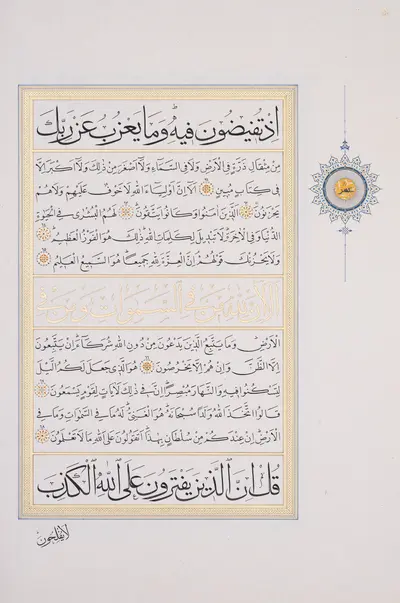 إذ تفيضون فيه وما يعزب عن ربك
من مثقال ذرة في الأرض ولا في السماء ولا أصغر من ذلك ولا أكبر إلا
في كتاب مبين ألا إن أولياء الله لا خوف عليهم ولا هم
يحزنون الذين آمنوا وكانوا يتقون لهم البشرى في الحيوة
الدنيا وفي الآخرة لا تبديل لكلمات الله ذلك هو الفوز العظيم
ولا يحزنك قولهم إن العزة لله جميعا هو السميع العليم
ألا إن لله من في السموات ومن في
الأرض وما يتبع الذين يدعون من دون الله شركاء إن يتبعون
إلا الظن وإن هم إلا يخرصون هو الذي جعل لكم الليل
لتسكنوا فيه والنهار مبصرا إن في ذلك لآيات لقوم يسمعون
قالوا اتخذ الله ولدا سبحانه هو الغني له ما في السموات وما في
الأرض إن عندكم من سلطان بهذا أتقولون على الله ما لا تعلمون
قل إن الذين يفترون على الله الكذب
لا يفلحون